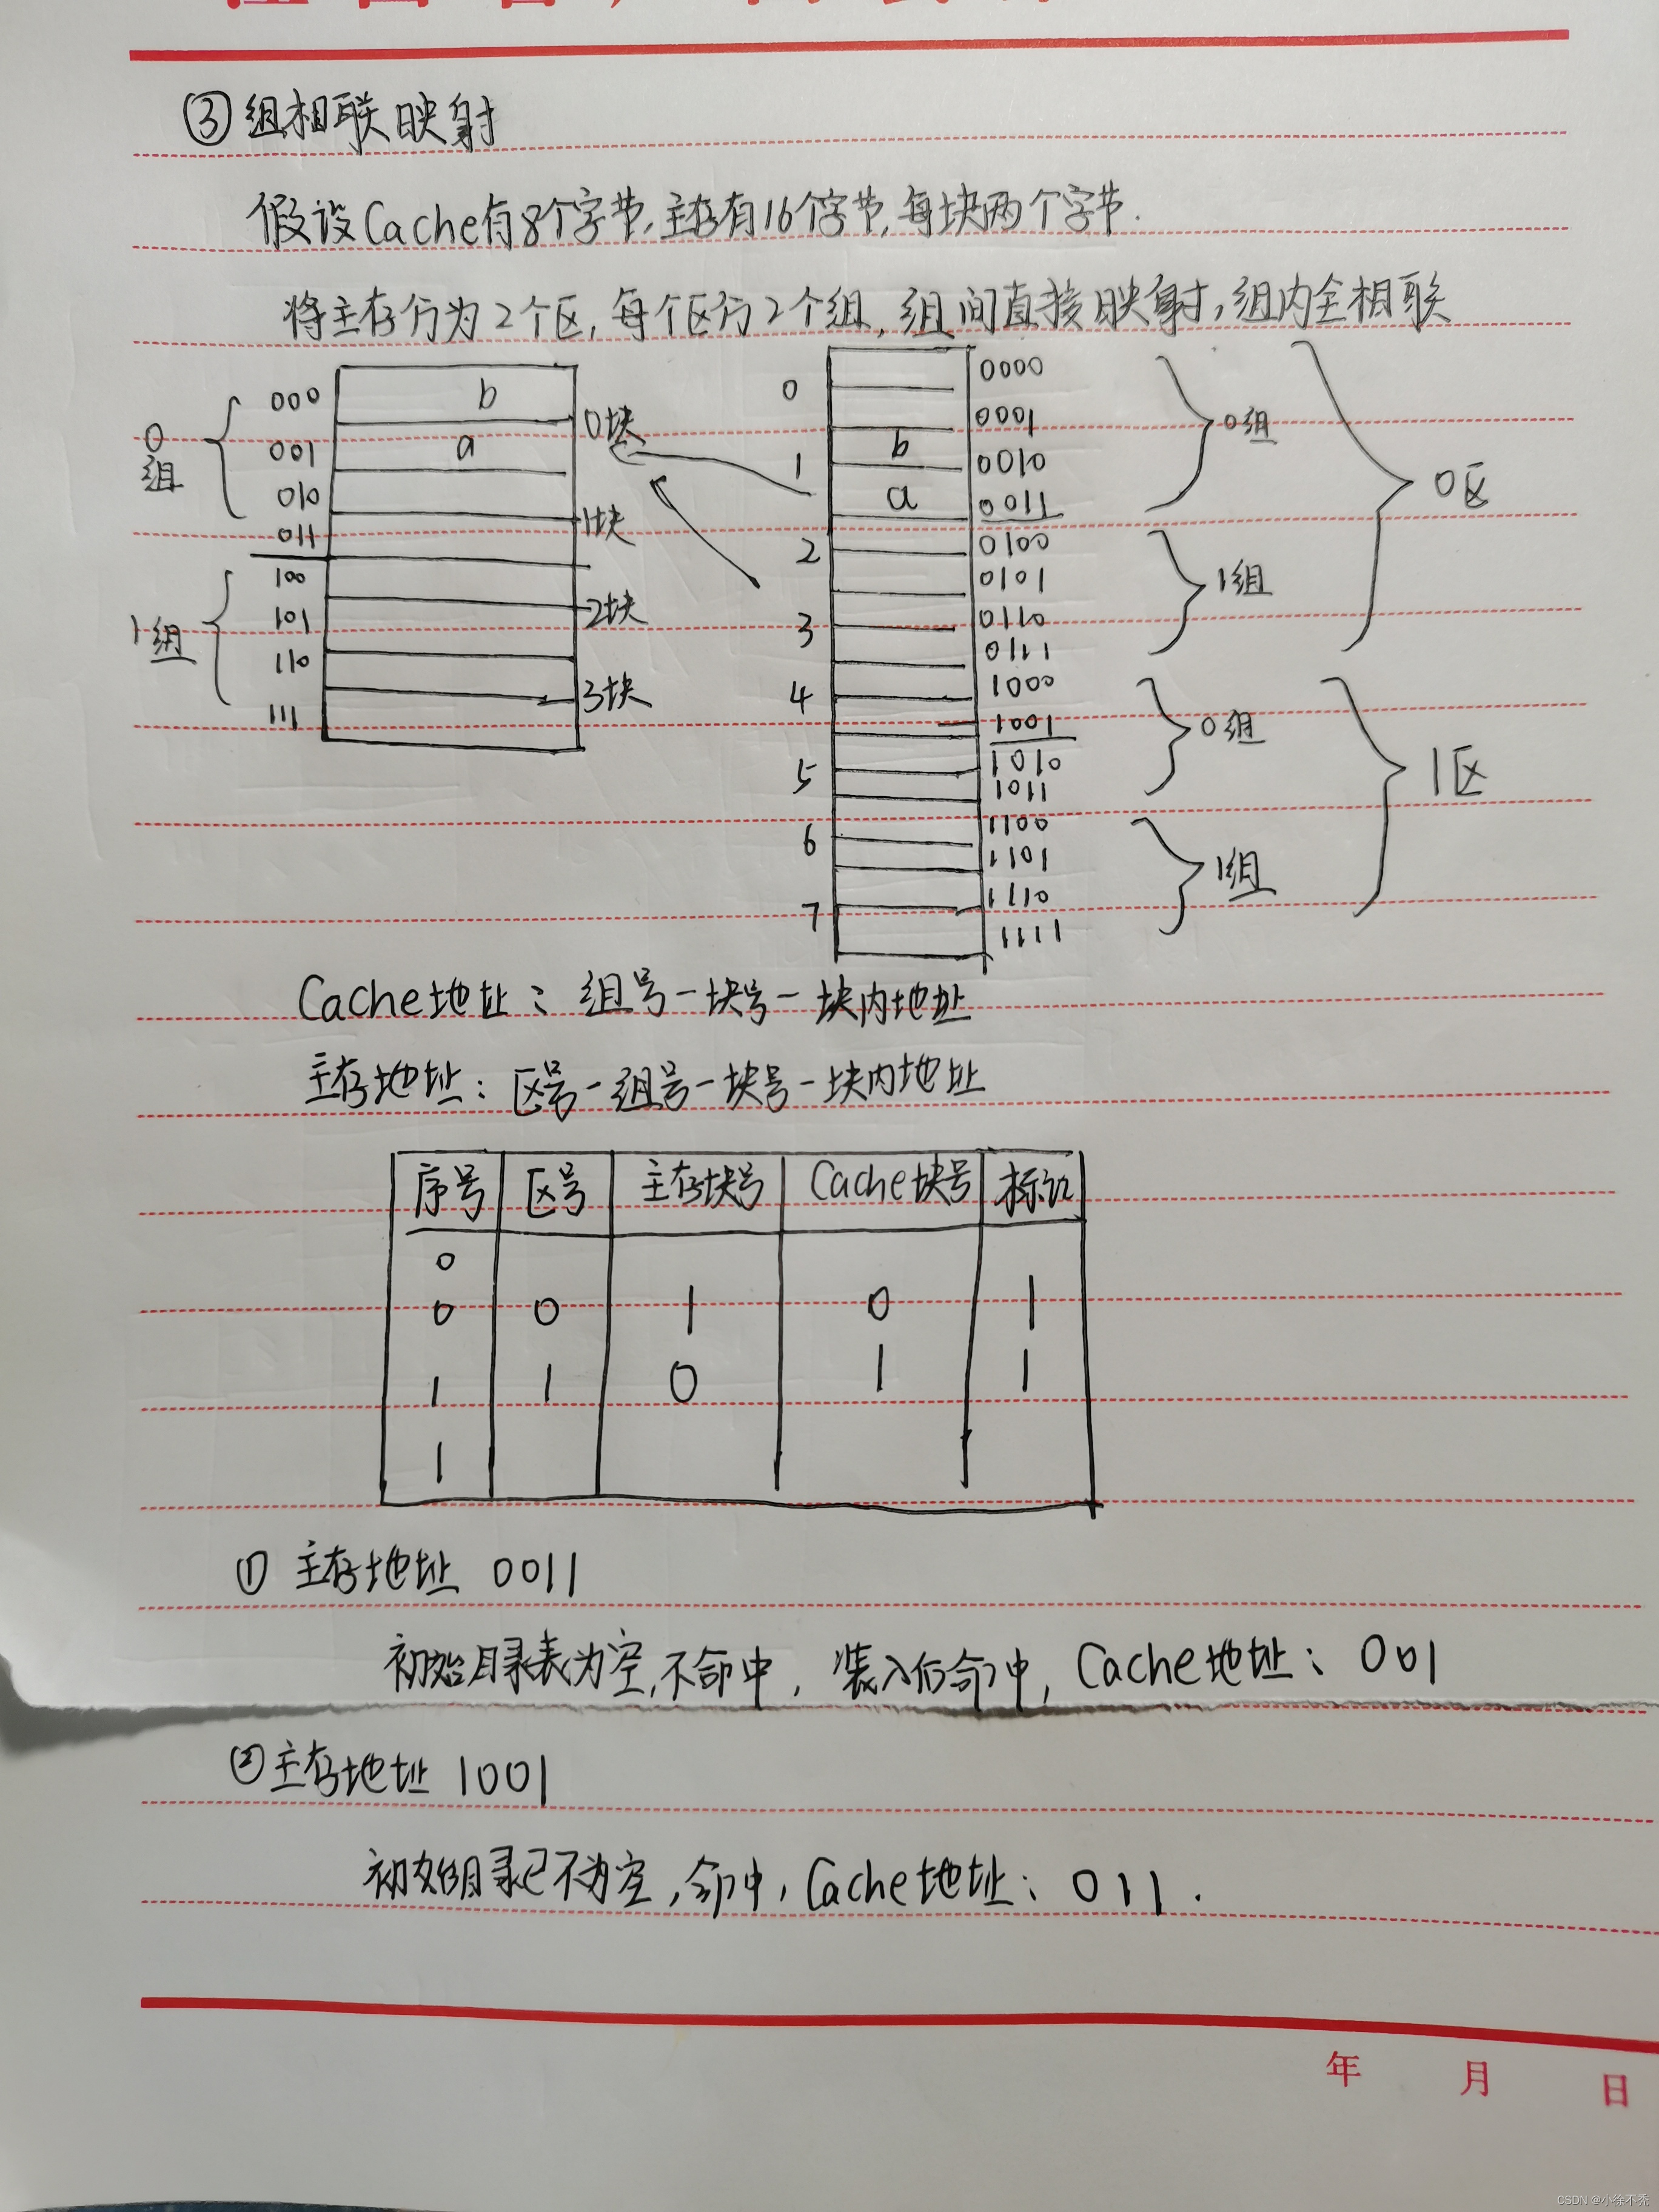 ③组相联映射
假设Cache有8个字节,主存有16个字节,每块两个字节.
将主存分为2个区,每个区分2个组,组间直接映射,组内全相联
0组
000
001
010
011
1组
100
101
110
111
b
a
0块
1块
2块
3块
0
1
2
3
4
5
6
7
b
a
0000
0001
0010
0011
0100
0101
0110
0111
1000
1001
1010
1011
1100
1101
1110
1111
0组
1组
0组
1组
0区
1区
Cache地址:组号-块号-块内地址
主存地址:区号-组号-块号-块内地址
序号 区号 主存块号 Cache块号 标记
0
0 0 1 0 1
1 1 0 1 1
1
① 主存地址 0011
初始目录表为空,不命中,装入后命中,Cache地址:001
②主存地址 1001
初始目录已不为空,命中,Cache地址:011.
年 月 日
CSDN @小徐不秃